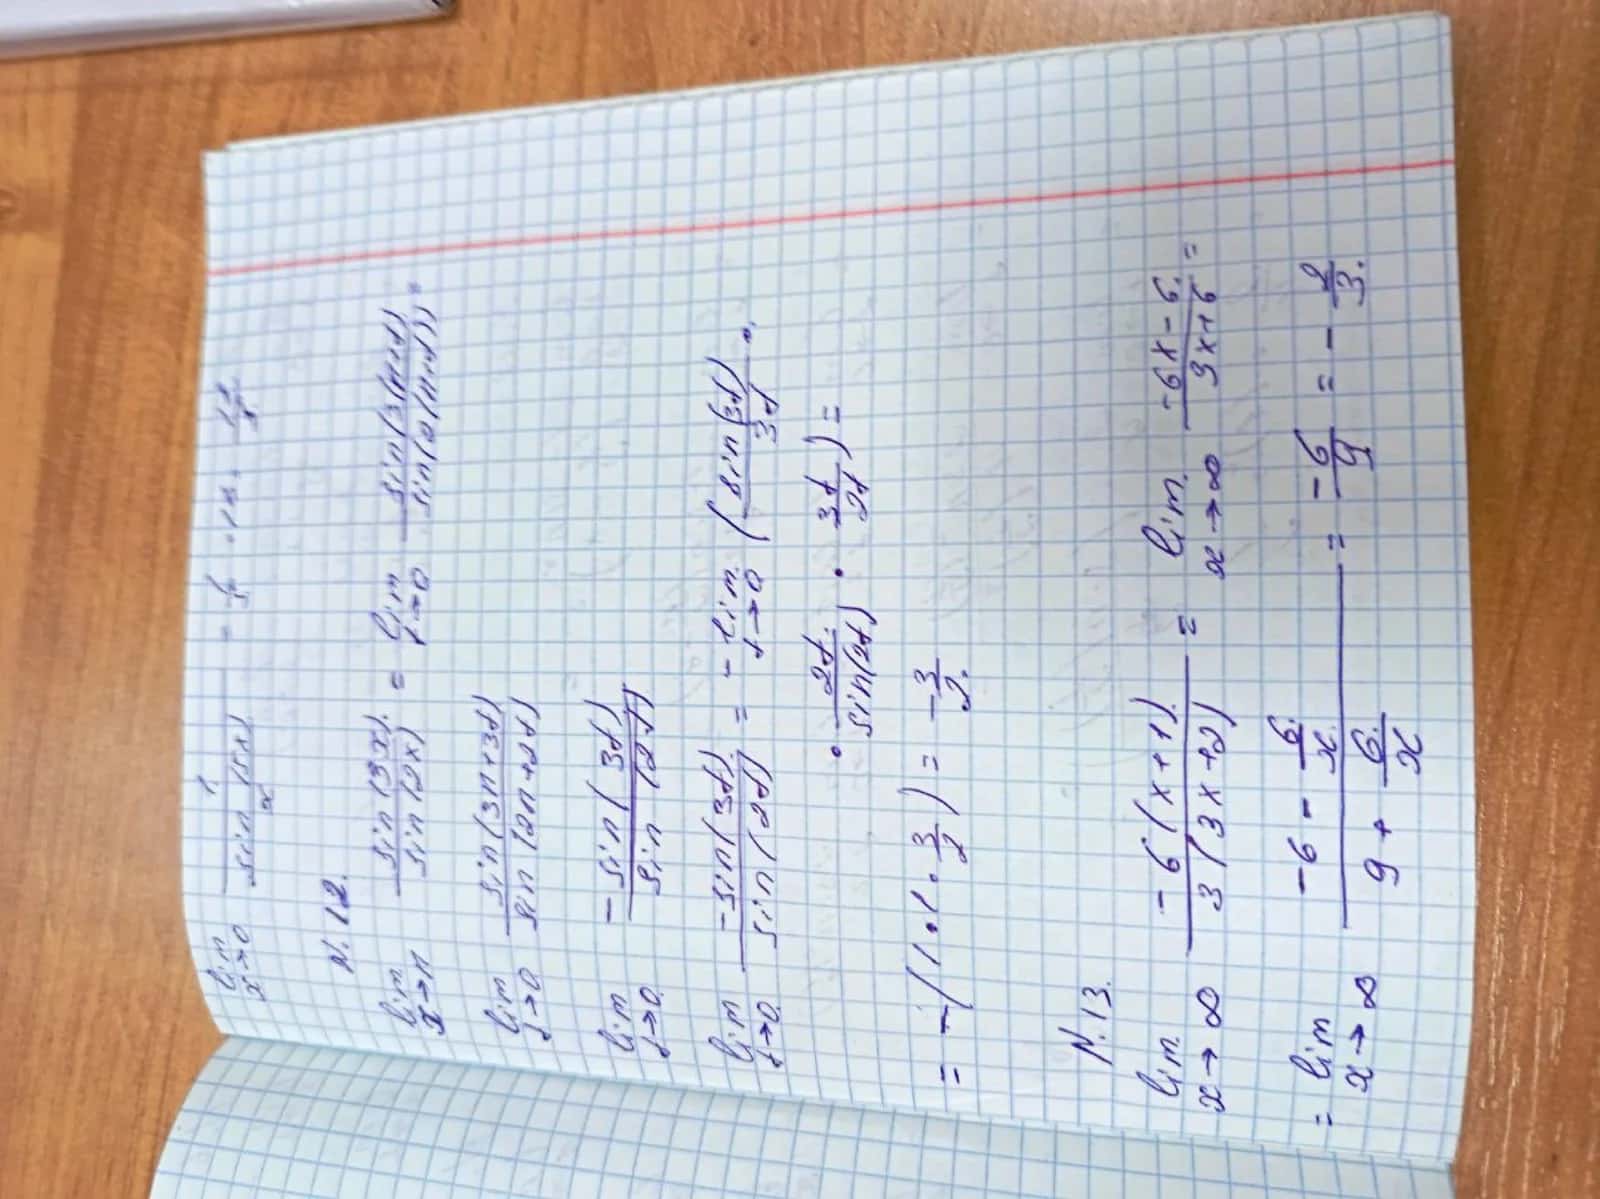 lim x→0 sin(5x) / x
N. 12.
lim x→π sin(3x) / sin(2x) = lim t→0 sin(3(π+t)) / sin(2(π+t)) =
lim t→0 sin(3π+3t) / sin(2π+2t)
lim t→0 -sin(3t) / sin(2t)
lim t→0 -sin(3t) / sin(2t) = - lim t→0 (sin(3t) / 3t ·
· 2t / sin(2t) · 3t / 2t) =
= -(1·1·3/2) = -3/2.
N. 13.
lim x→∞ -6(x+1) / 3(3x+2) = lim x→∞ -6x-6 / 9x+6 =
= lim x→∞ -6 - 6/x / 9 + 6/x = -6/9 = -2/3.